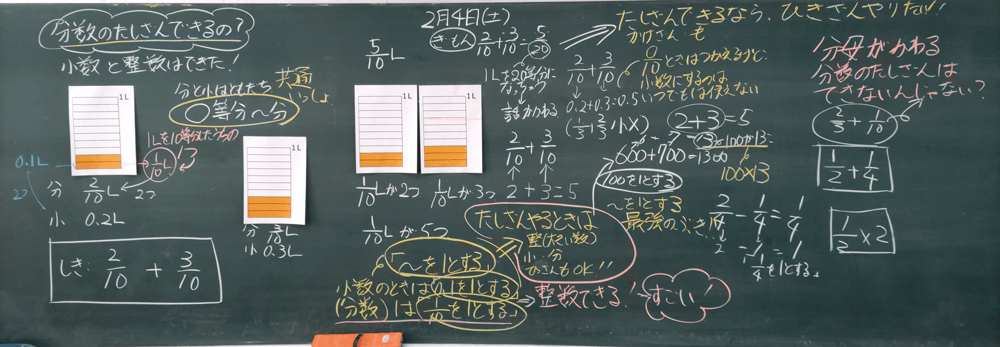 分数のたしざんできるの?
小数と整数はできた!
1L
分と小はともだち
共通
いっしょ
○等分〜分
1Lを10等分した
1/10L
0.1L
2つ
分 2/10L 2つ
小 0.2L
しき: 2/10 + 3/10
1L
分 3/10L
小 0.3L
5/10L
1L
1L
1/10Lが2つ
1/10Lが3つ
1/10Lが5つ
「〜を1とする」
小数のときは「0.1を1とする」
(分数)は「1/10を1とする」
整数できる!
すごい!
2月4日(土)
ぎもん 2/10+3/10=5/20
1Lを20等分に
話かわる
2/10+3/10
0.2+0.3=0.5
(1/3+2/3 小×)
2/10 + 3/10
2+3=5
たしざんやるときは
整(大きい数)
小・分
かさんもOK!!
たしざんできるなら、ひきざんやりたい!
かけざんも
小数にするのは
いつでもは使えない
2+3=5
600+700=1300
100が13こ
100×13
100を1とする
〜を1とする
最強のぶき!!
2/4 − 1/4 = 1/4
2 − 1 = 1
「1/4を1とする」
分母がかわる
分数のたしざんは
できないんじゃない?
2/3 + 1/10
1/2 + 1/4
1/2 × 2